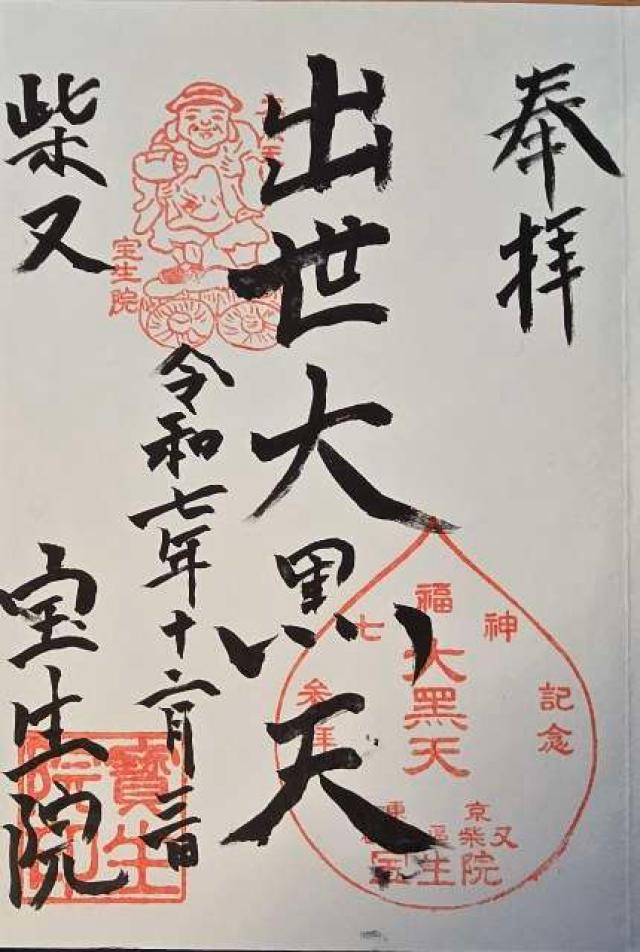 奉拝
出世大黒天
令和七年十二月三日
柴又
宝生院
宝生院
七福神
参拝
記念
大黑天
東京
柴又
宝生院
寶生院印